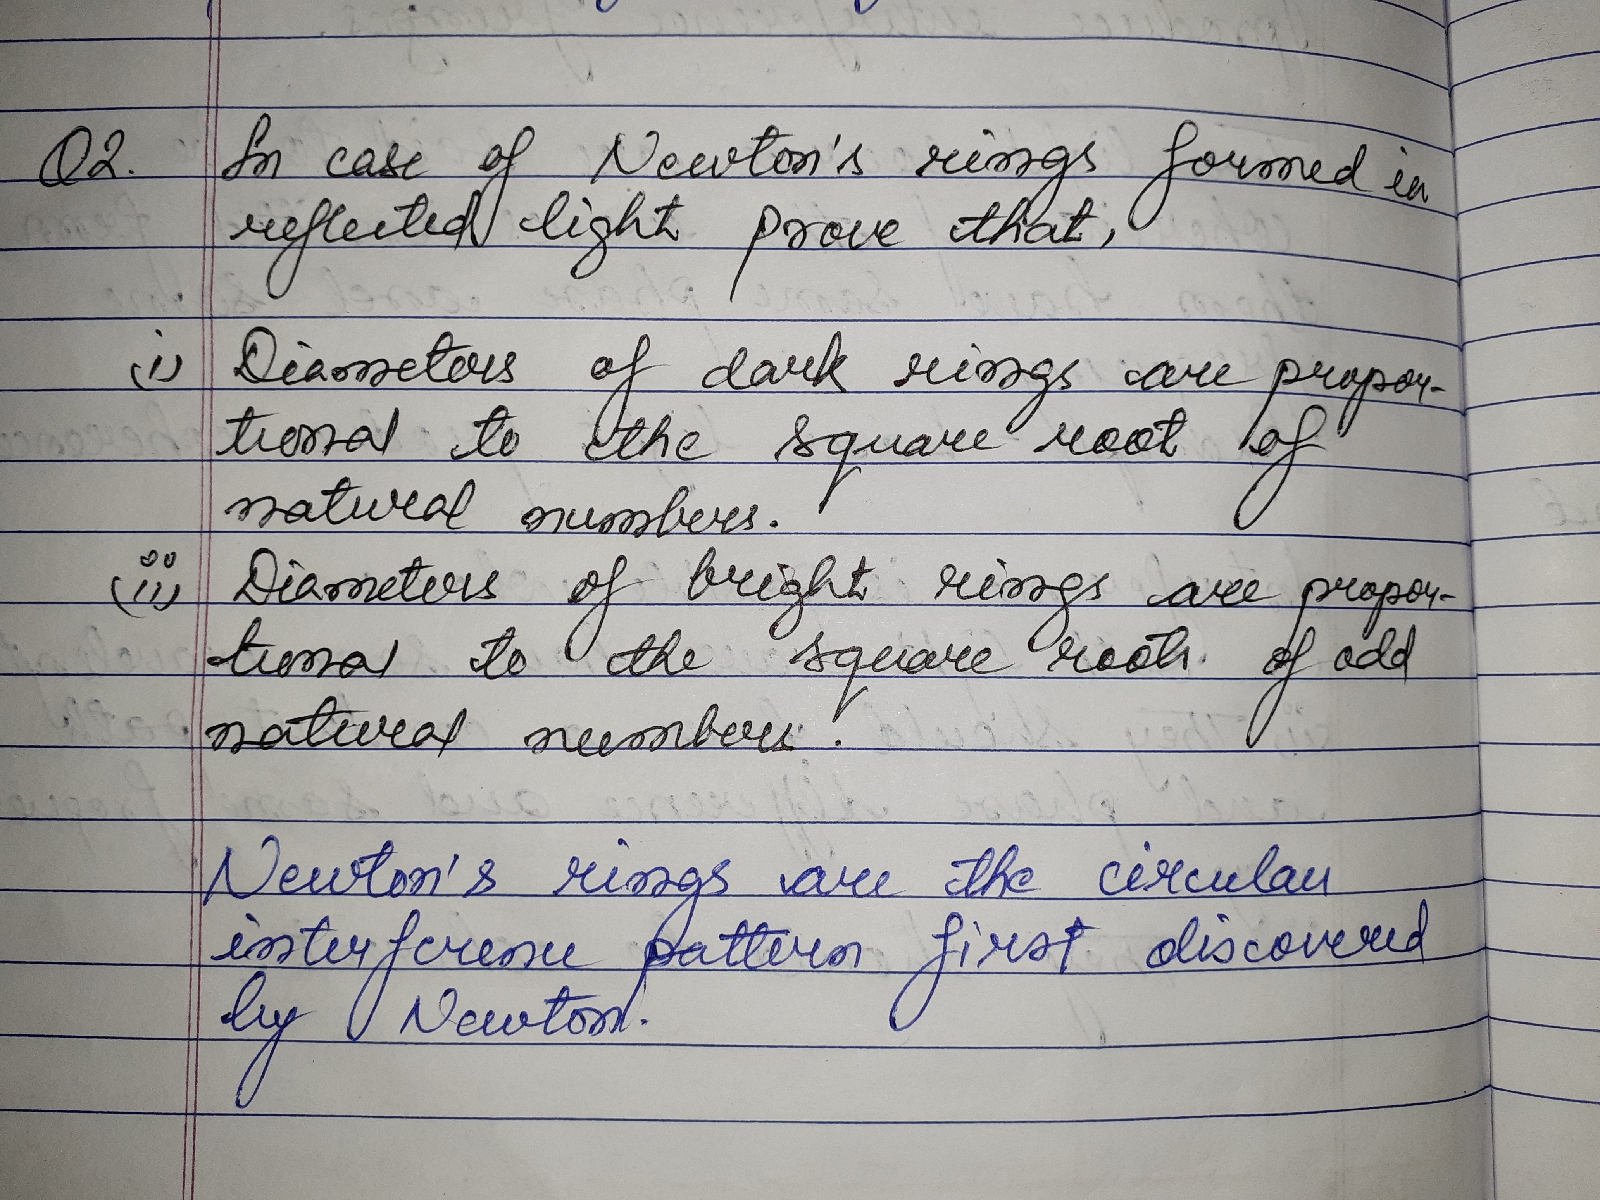 Q2. In case of Newton's rings formed in
reflected light prove that,
(i) Diameters of dark rings are propor-
tional to the square root of
natural numbers.
(ii) Diameters of bright rings are propor-
tional to the square root of odd
natural numbers.
Newton's rings are the circular
interference pattern first discovered
by Newton.